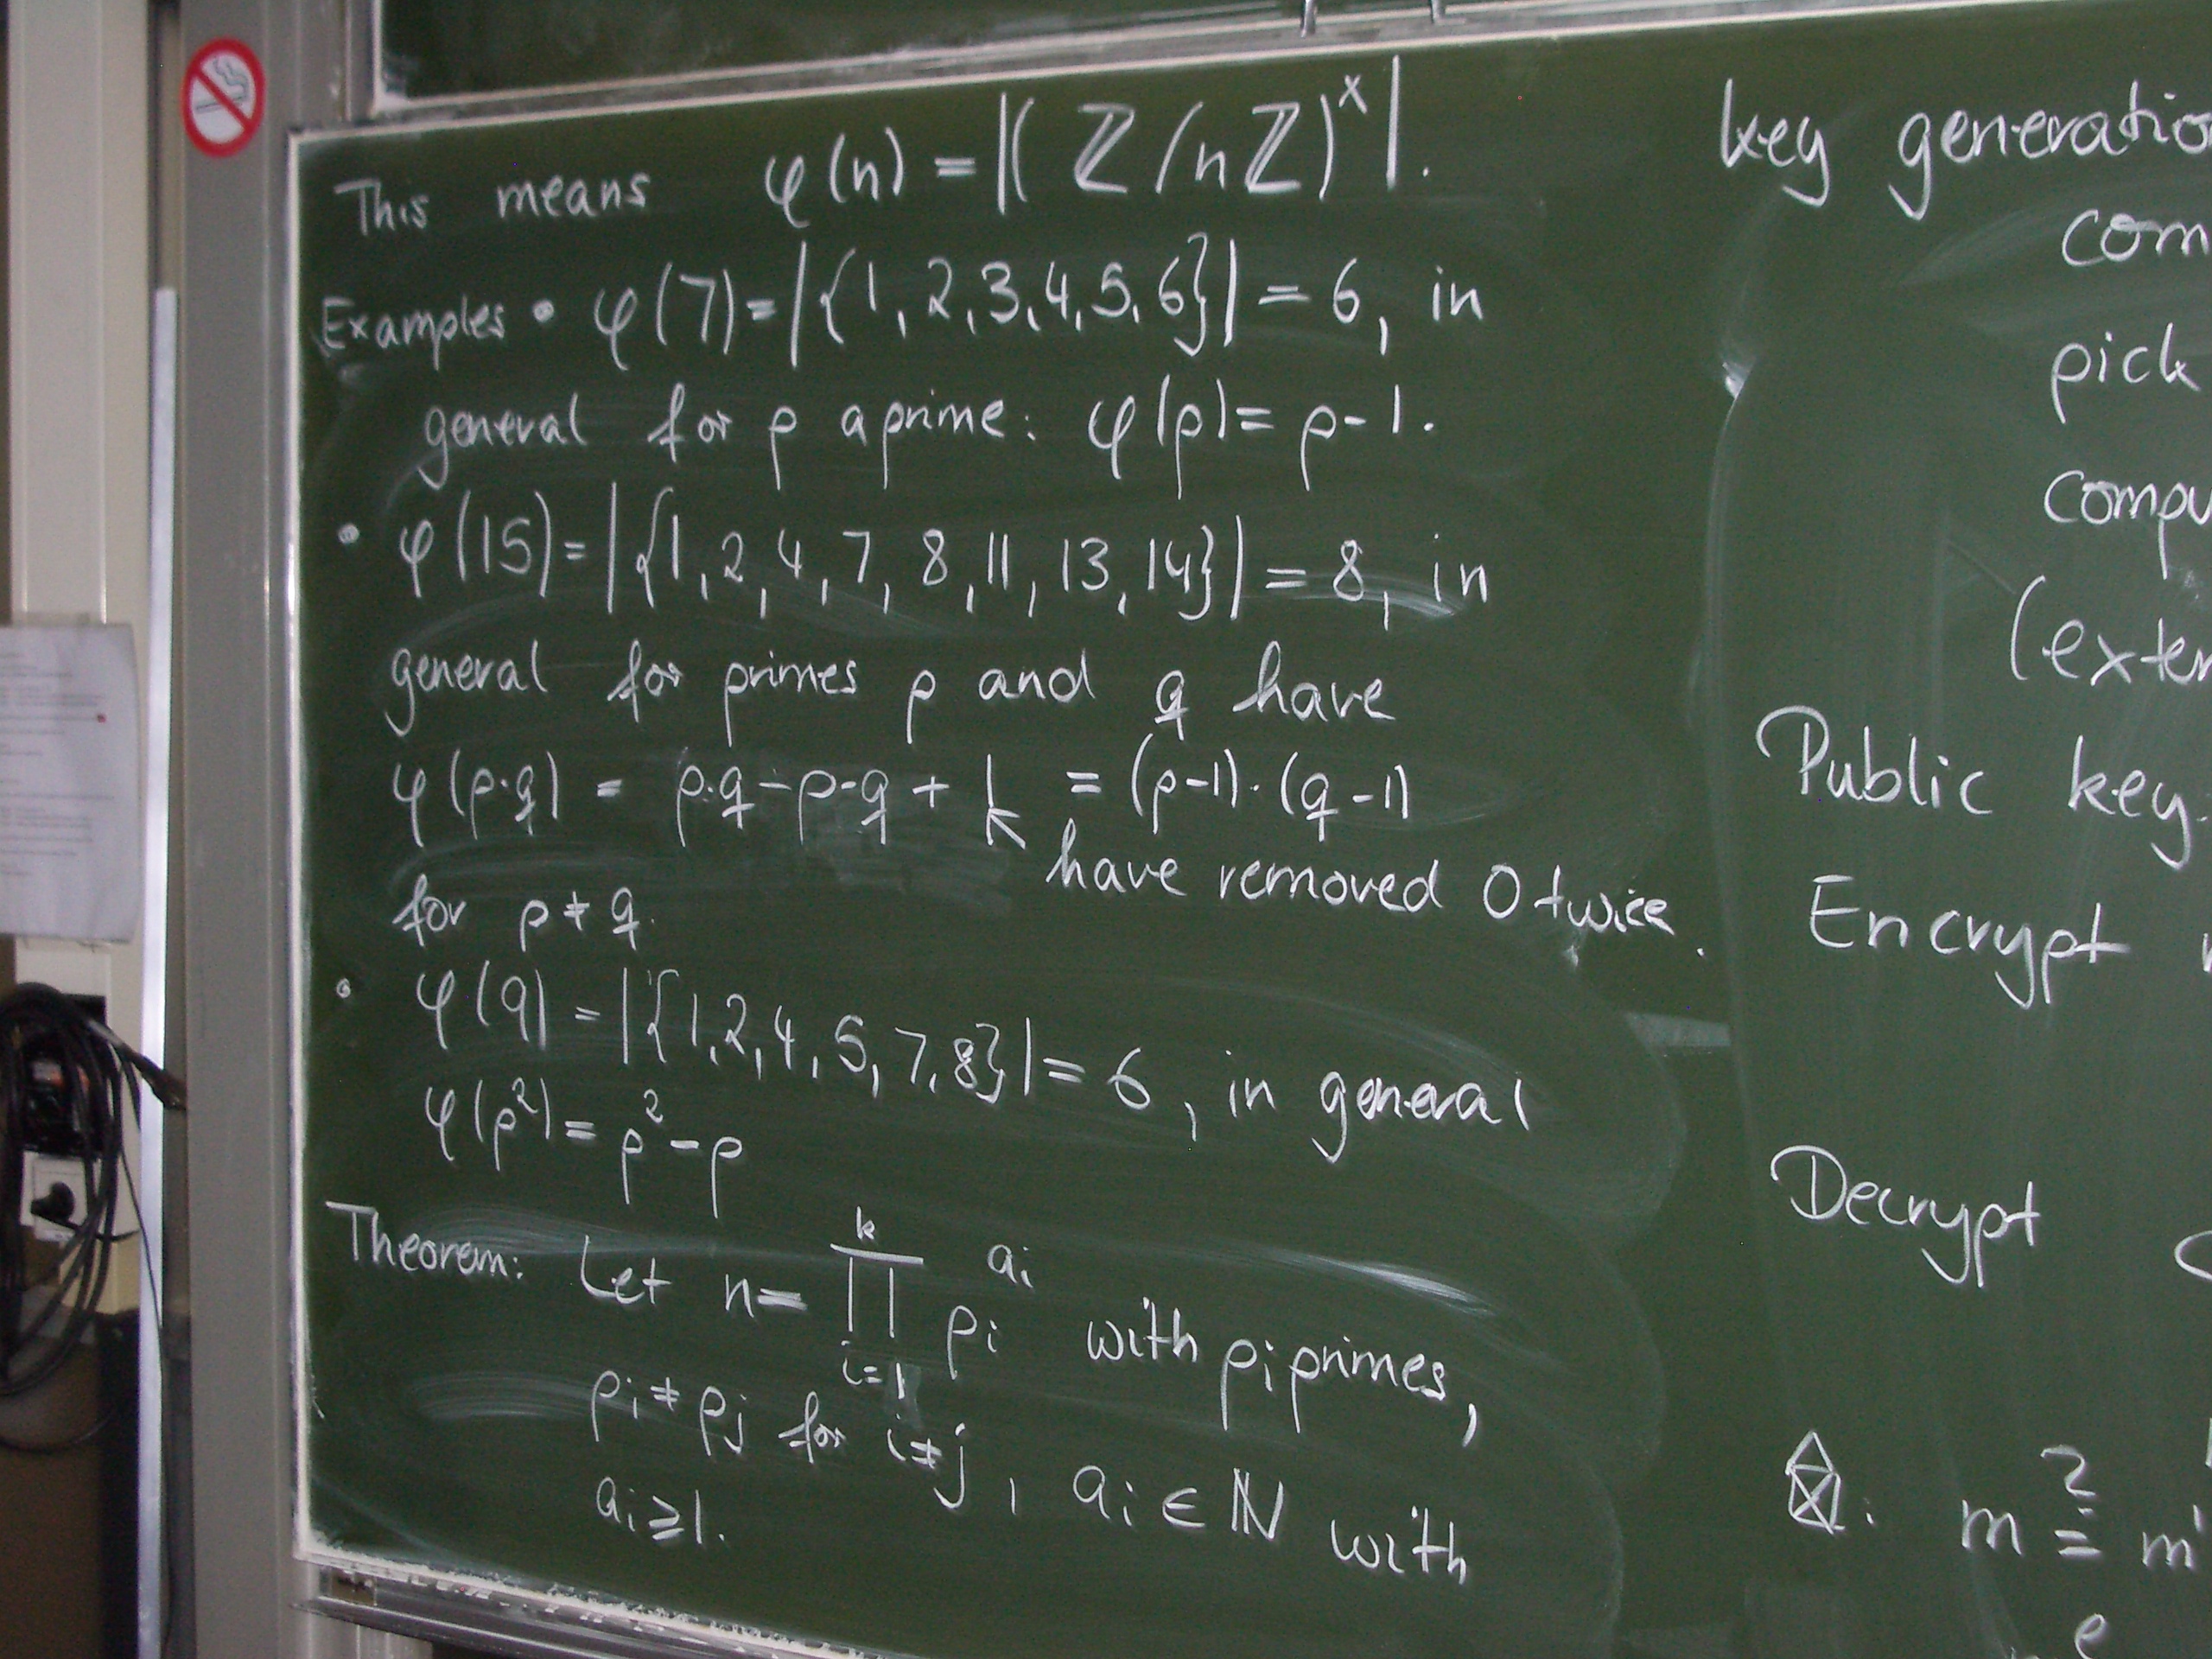 This means φ(n) = |(ℤ/nℤ)^x|.
Examples • φ(7) = |{1, 2, 3, 4, 5, 6}| = 6, in
general for p a prime: φ(p) = p-1.
• φ(15) = |{1, 2, 4, 7, 8, 11, 13, 14}| = 8, in
general for primes p and q have
φ(p·q) = p·q-p-q + 1 = (p-1)·(q-1)
have removed 0 twice.
for p ≠ q.
• φ(9) = |{1, 2, 4, 5, 7, 8}| = 6, in general
φ(p²) = p²-p
Theorem: Let n = ∏_{i=1}^{k} p_i^{a_i} with p_i primes,
p_i ≠ p_j for i ≠ j, a_i ∈ ℕ with
a_i ≥ 1.
key generatio
com
pick
compu
(exten
Public key.
Encrypt
Decrypt
m ≟ m'
e